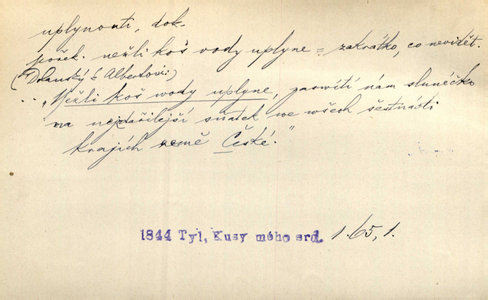 uplynouti, dok.
pořek. nežli koš vody uplyne = zakrátko, co nevidět.
(Dolanský k Albertovi:)
... „Nežli koš vody uplyne, zasvítí nám slunéčko
na nejzdařilejší sňatek ve všech šestnácti
krajích země České."
1844 Tyl, Kusy mého srd. 1.65,1.